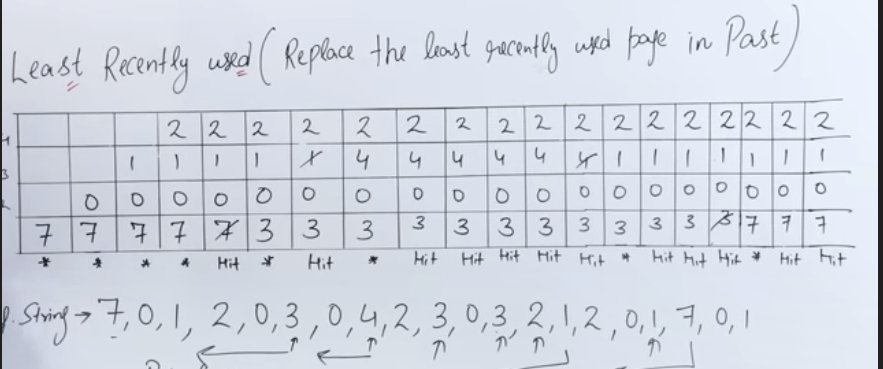 Least Recently used (Replace the least recently used page in Past)
2 2 2 2 2 2 2 2 2 2 2 2 2 2 2 2 2
3 1 1 1 1 1 4 4 4 4 4 4 1 1 1 1 1 1 1
0 0 0 0 0 0 0 0 0 0 0 0 0 0 0 0 0 0 0
7 7 7 7 7 3 3 3 3 3 3 3 3 3 3 3 3 7 7 7
* * * * Hit * Hit * Hit Hit Hit Hit Hit * Hit Hit Hit * Hit Hit
String → 7, 0, 1, 2, 0, 3, 0, 4, 2, 3, 0, 3, 2, 1, 2, 0, 1, 7, 0, 1